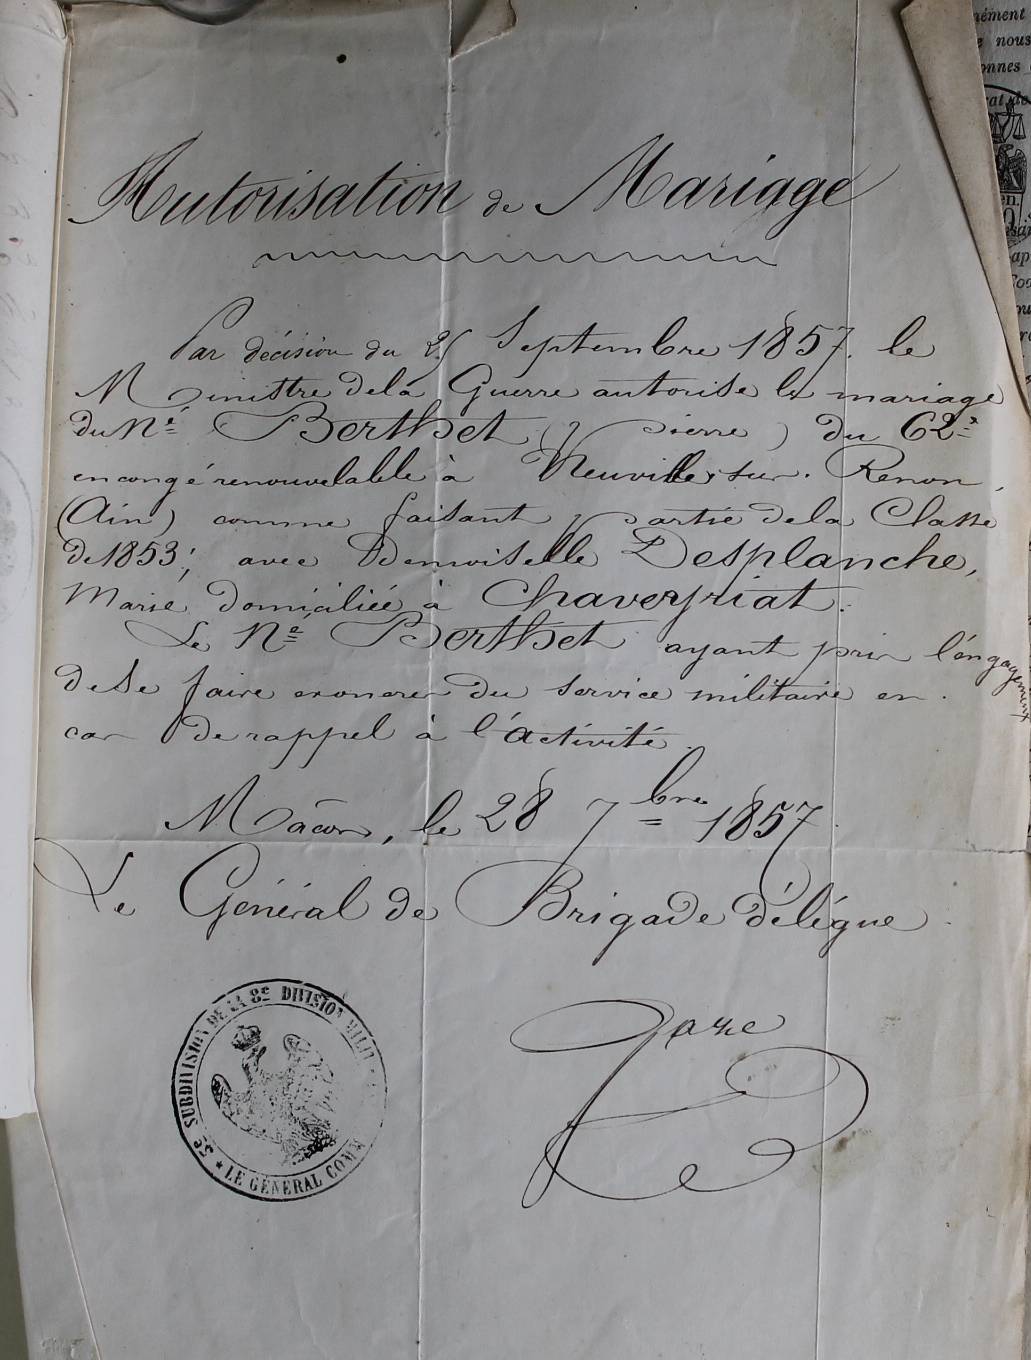 Autorisation de Mariage
Par décision du 25 Septembre 1857. le
Ministre de la Guerre autorise le mariage
du Né Berthet (Pierre) du 62e
en congé renouvelable à Neuville, sur. Renon,
(Ain) comme faisant partie de la Classe
de 1853; avec Demoiselle Desplanche,
Marie, domiciliée à Chaveyriat.
Le Né Berthet ayant pris l'engagement
de se faire exonerer du service militaire en
cas de rappel à l'activité.
Mâcon, le 28 7bre 1857.
Le Général de Brigade délégué
5e SUBDIVISION DE LA 8e DIVISION MILIT
★ LE GÉNÉRAL COMM
nément
nous
onnes